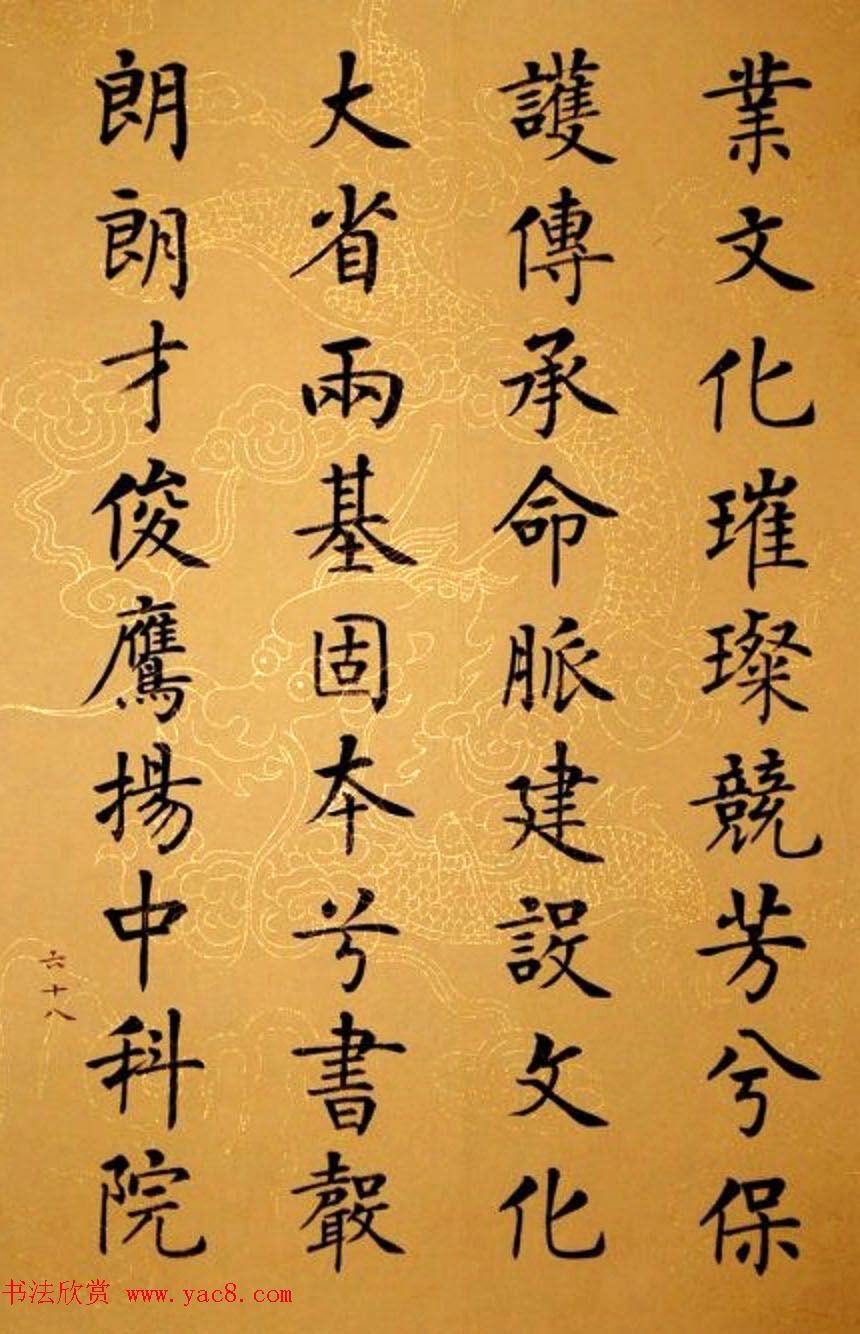 業文化璀璨競芳兮保
護傳承命脈建設文化
大省兩基固本兮書聲
朗朗才俊鷹揚中科院
六十八
书法欣赏 www.yac8.com